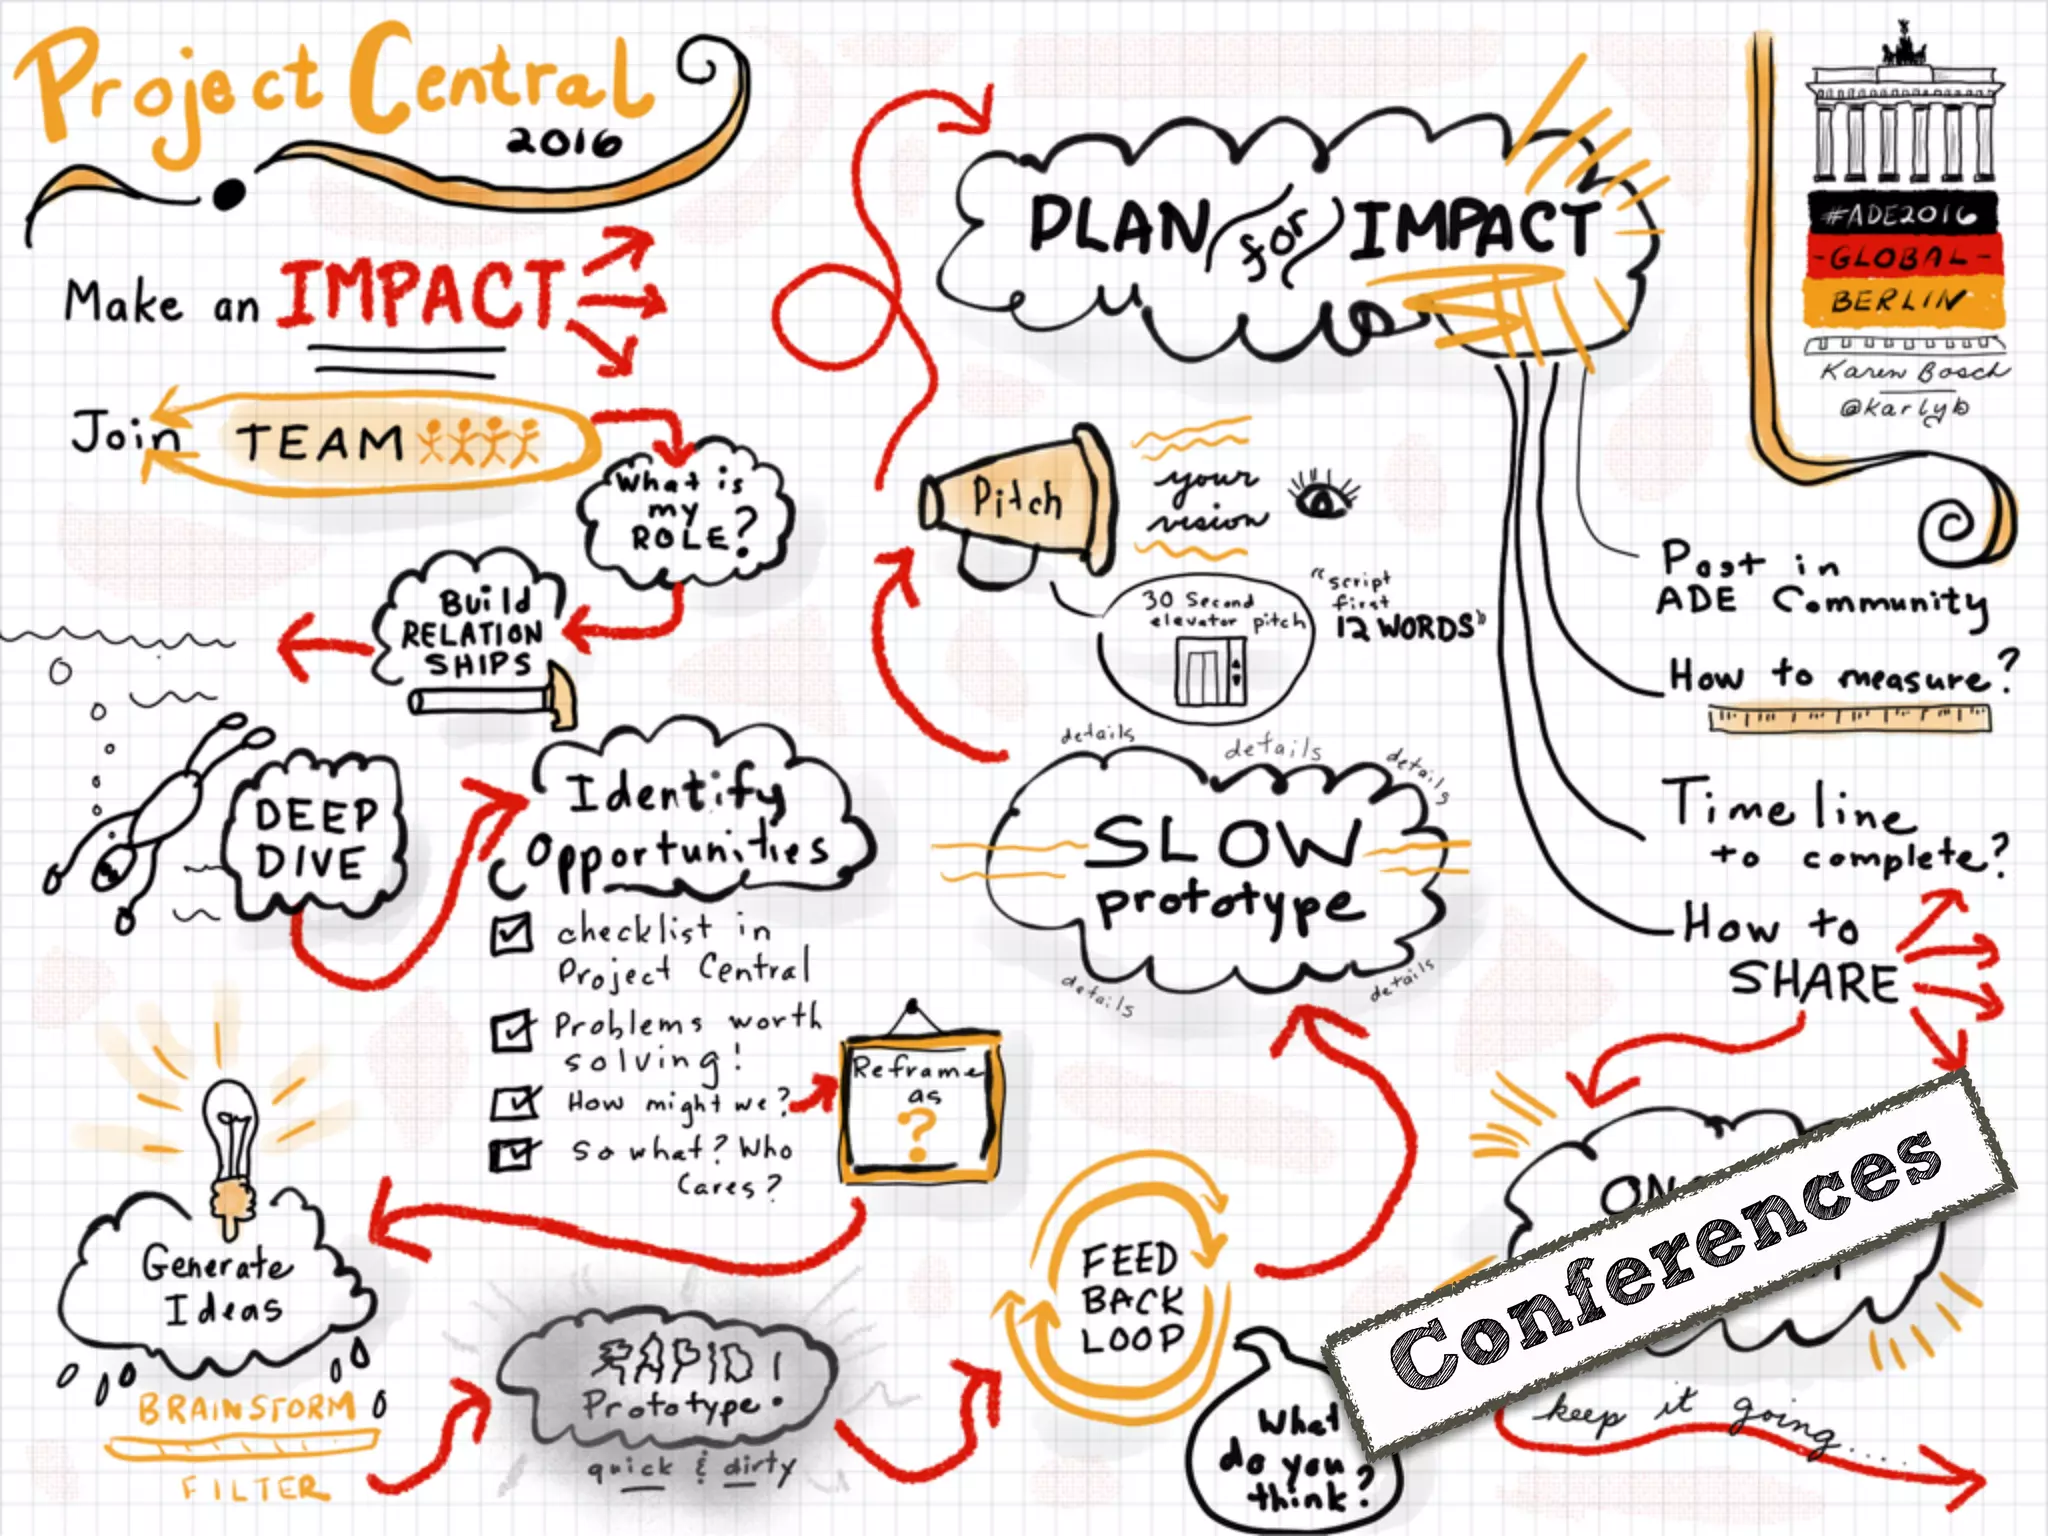 Project Central
2016
Make an IMPACT
Join TEAM
What is
my
ROLE?
Build
RELATION
SHIPS
DEEP
DIVE
Identify
Opportunities
checklist in
Project Central
Problems worth
solving!
How might we?
So what? Who
Cares?
Reframe
as
?
Generate
Ideas
BRAINSTORM
FILTER
RAPID!
Prototype.
quick & dirty
FEED
BACK
LOOP
What
do you
think?
details
details
details
SLOW
prototype
details
details
Pitch
your
vision
30 Second
elevator pitch
"script
first
12 WORDS"
PLAN for IMPACT
Post in
ADE Community
How to measure?
Timeline
to complete?
How to
SHARE
Conferences
keep it going....
#ADE2016
-GLOBAL-
BERLIN
Karen Bosch
@karlyb